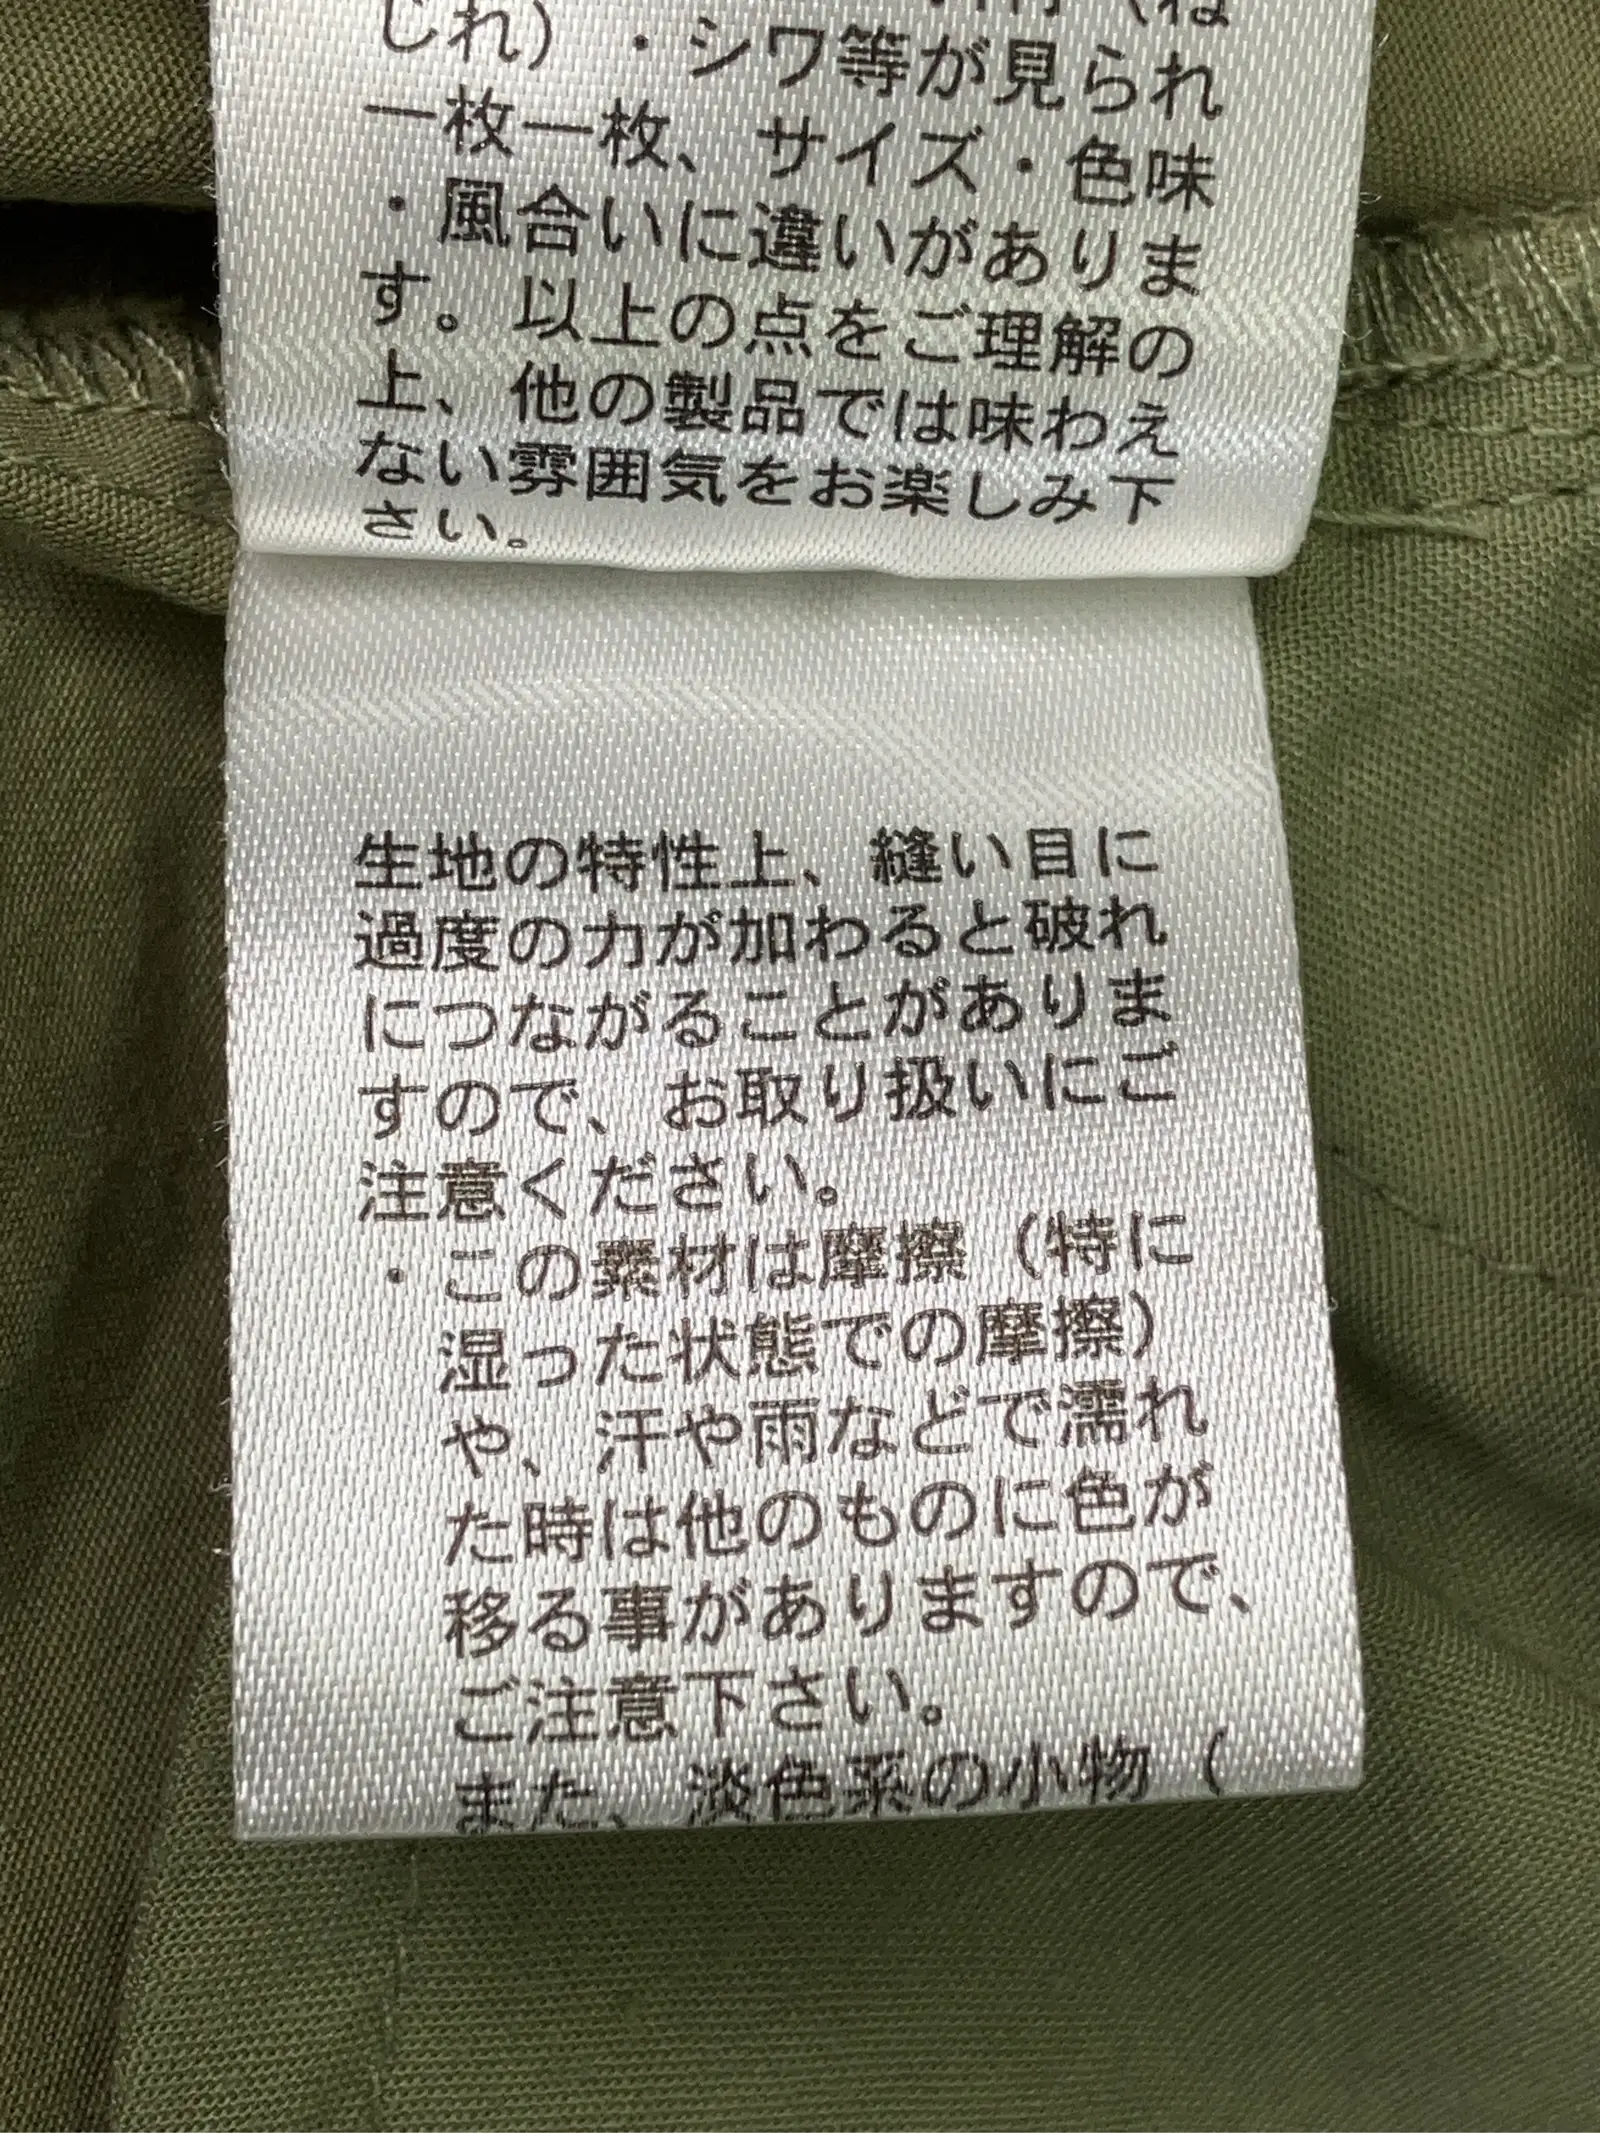 じれ）・シワ等が見られ
一枚一枚、サイズ・色味
・風合いに違いがありま
す。以上の点をご理解の
上、他の製品では味わえ
ない雰囲気をお楽しみ下
さい。
生地の特性上、縫い目に
過度の力が加わると破れ
につながることがありま
すので、お取り扱いにご
注意ください。
・この素材は摩擦（特に
湿った状態での摩擦）
や、汗や雨などで濡れ
た時は他のものに色が
移る事がありますので、
ご注意下さい。
また、淡色系の小物（